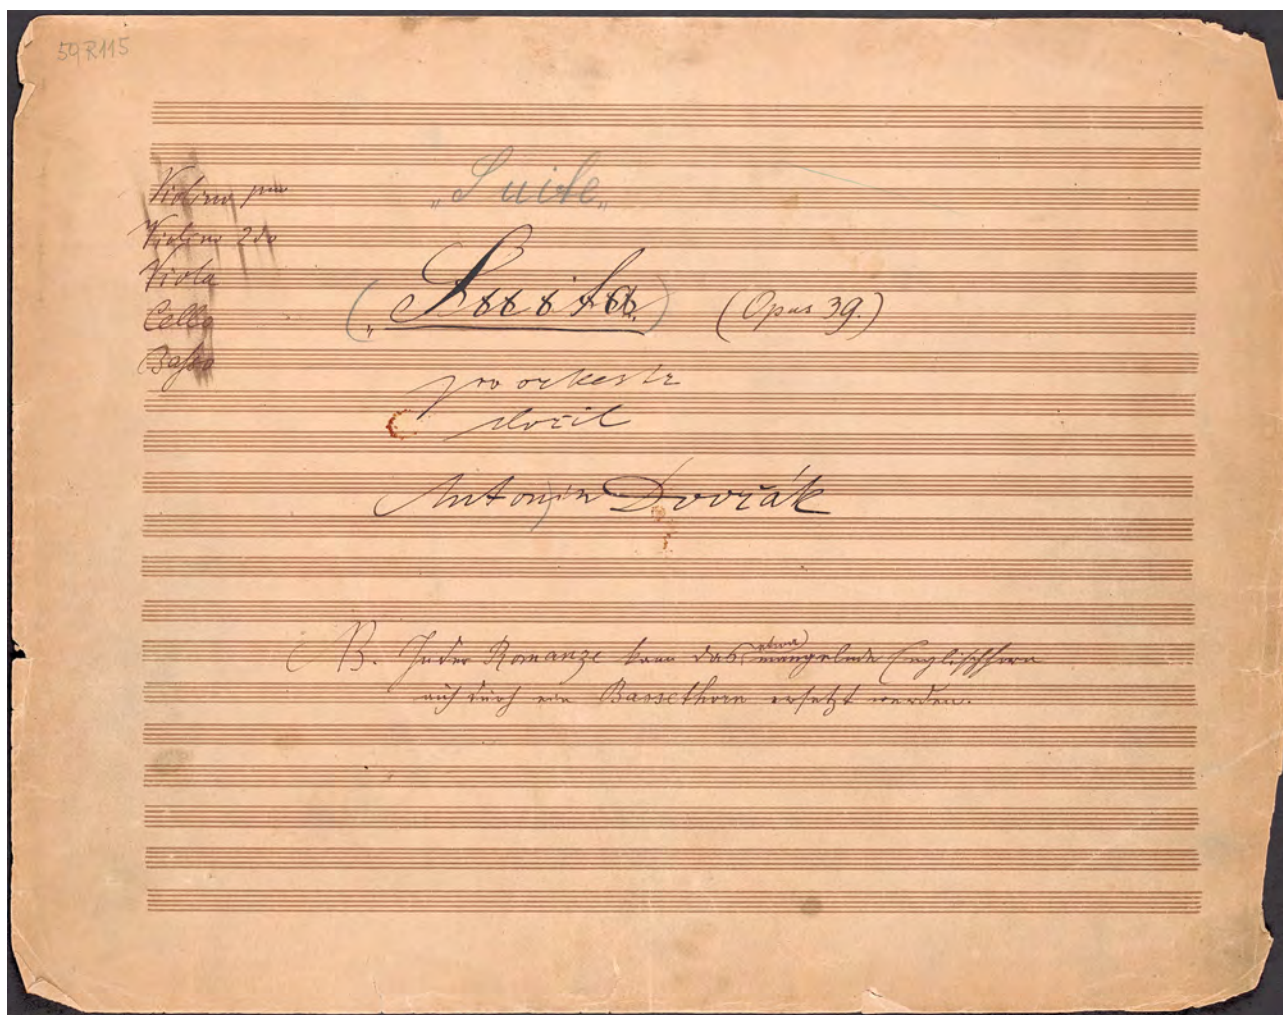 59R115
"Suite"
Violino pmo
Violino 2do
Viola
Cello
Basso
("Suita") (Opus 39.)
pro orkestr
složil
Antonín Dvořák
NB. In der Romanze kann das etwa mangelnde Englischhorn
auch durch ein Bassethorn ersetzt werden.